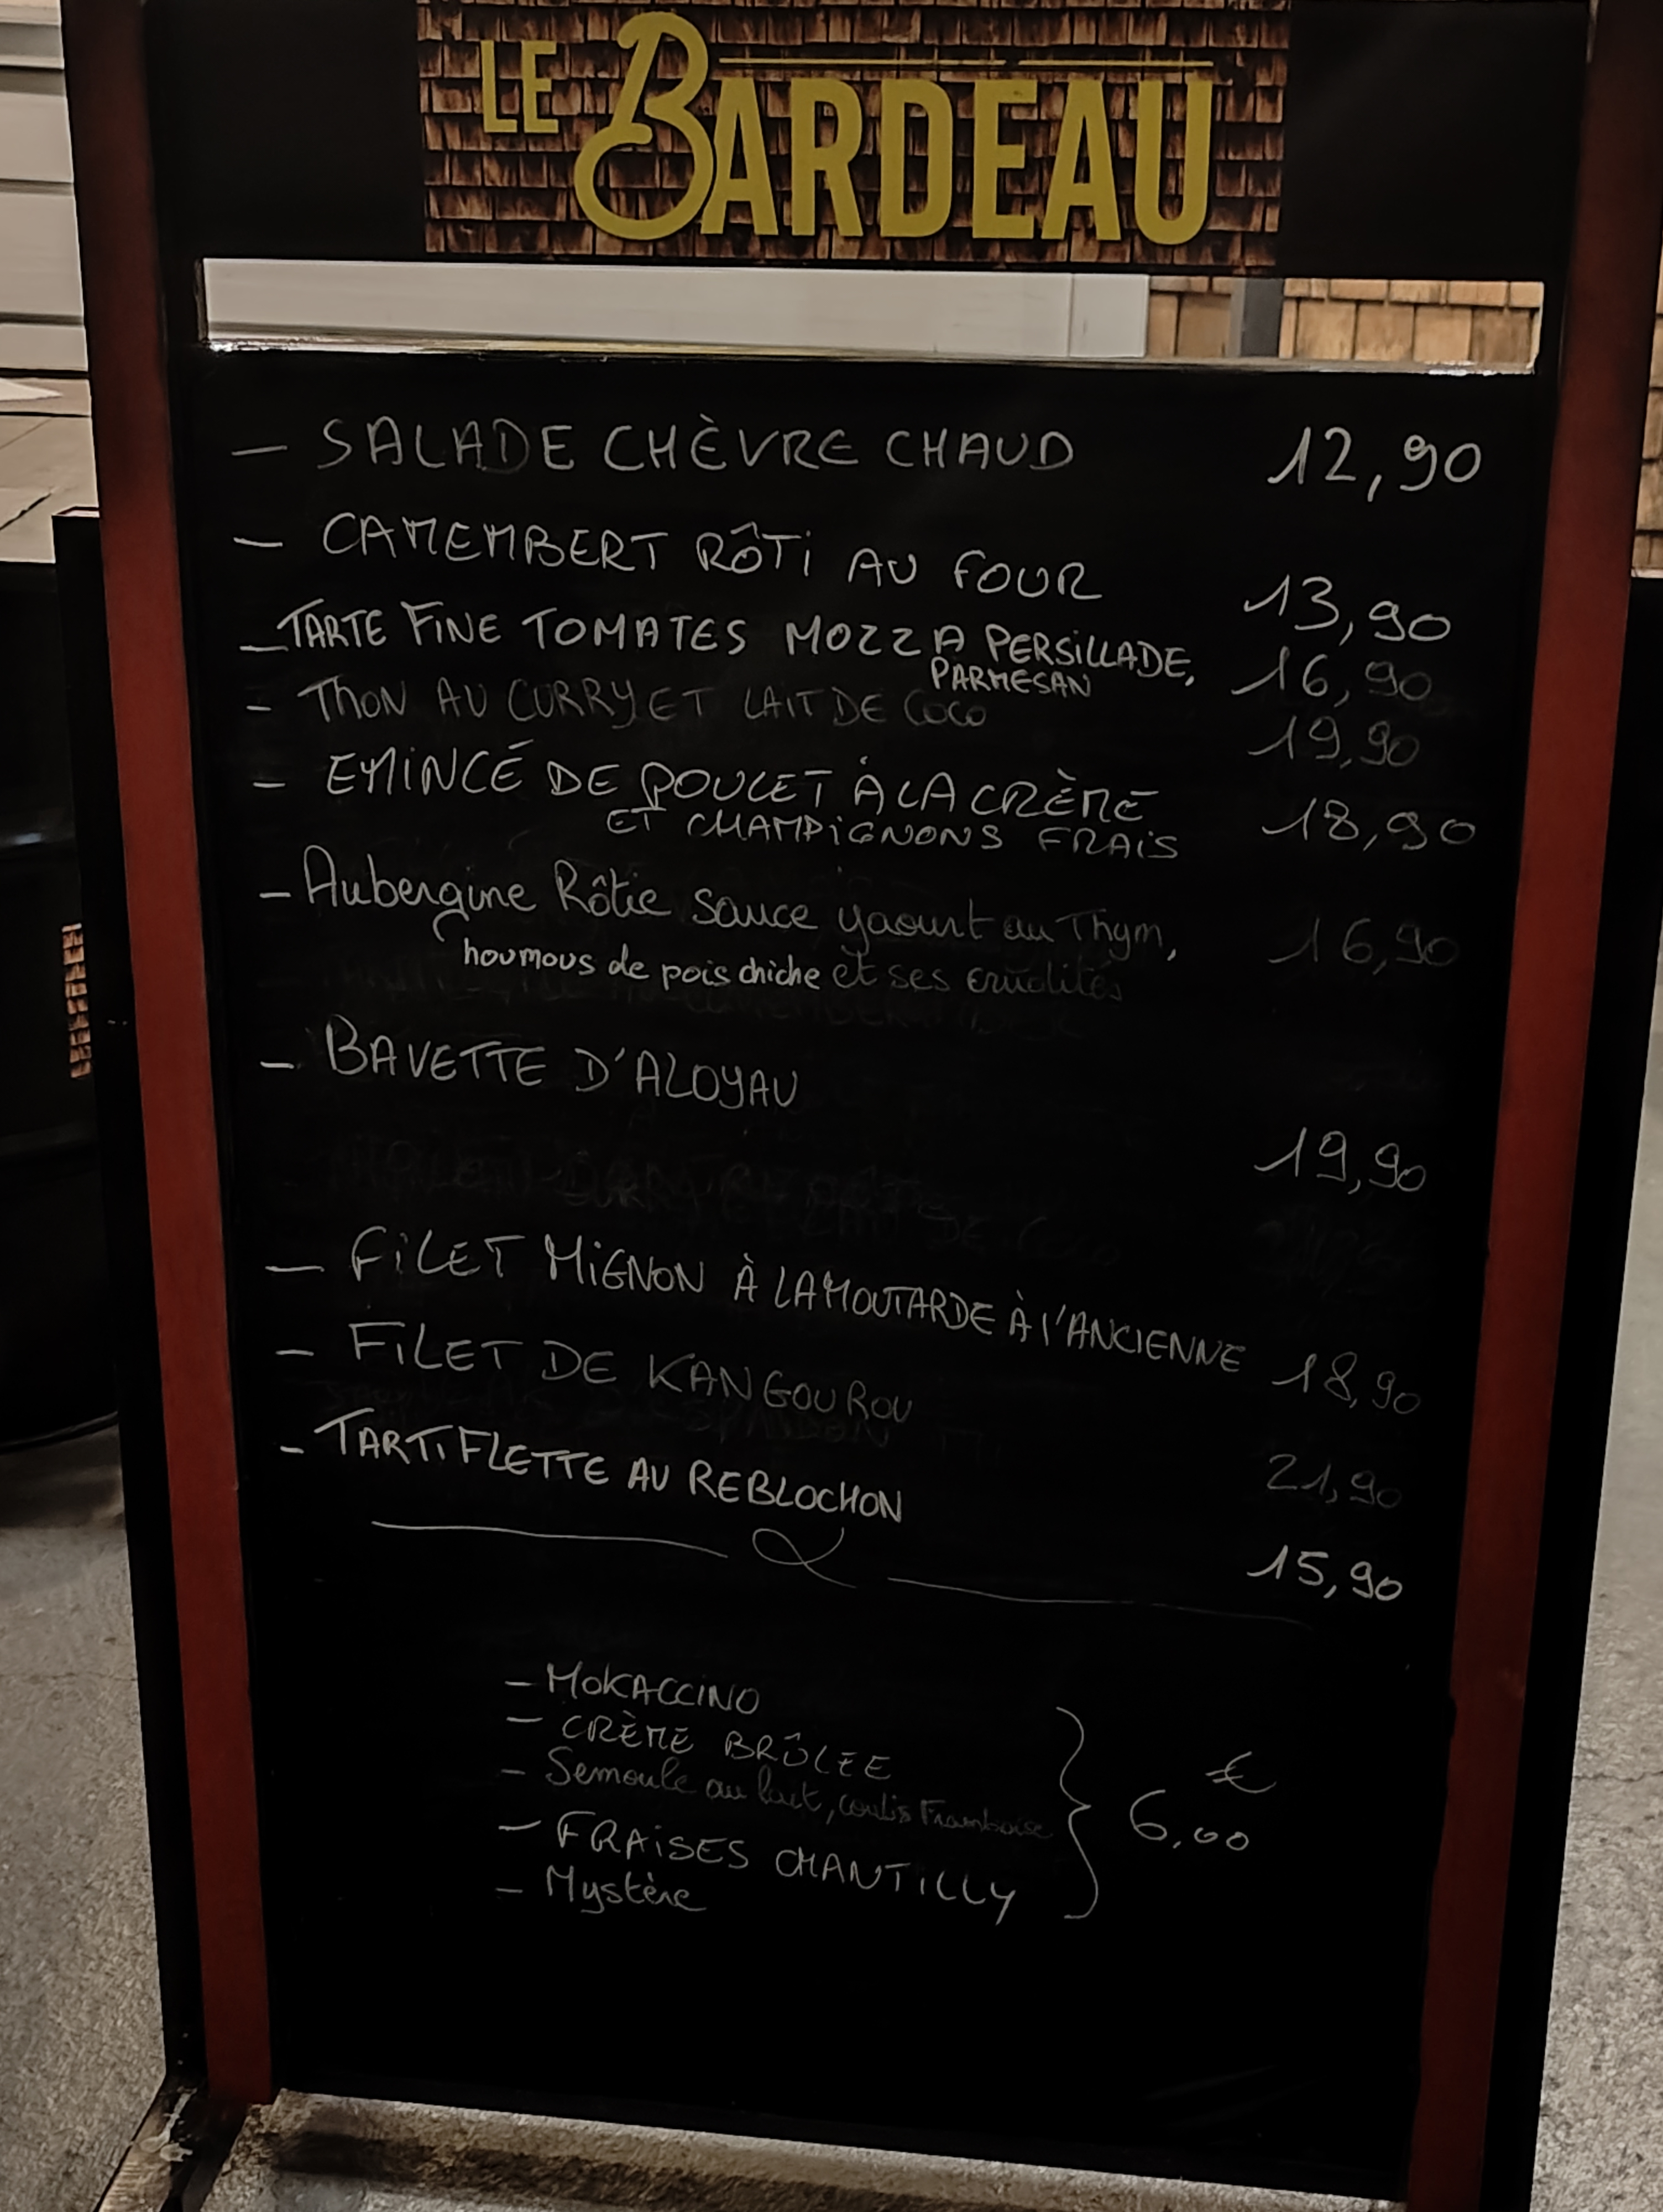 LE BARDEAU
- SALADE CHÈVRE CHAUD 12,90
- CAMEMBERT RÔTI AU FOUR 13,90
- TARTE FINE TOMATES MOZZA PERSILLADE, 16,90
PARMESAN
- THON AU CURRY ET LAIT DE COCO 19,90
- EMINCÉ DE POULET À LA CRÈME 18,90
ET CHAMPIGNONS FRAIS
- Aubergine Rôtie sauce yaourt au Thym, 16,90
houmous de pois chiche et ses crudités
- BAVETTE D'ALOYAU
19,90
- FILET MIGNON À LA MOUTARDE À l'ANCIENNE 18,90
- FILET DE KANGOUROU
21,90
- TARTIFLETTE AU REBLOCHON
15,90
- MOKACCINO
- CRÈME BRÛLEE
- Semoule au lait, coulis Framboise
€
6,00
- FRAISES CHANTILLY
- Mystère